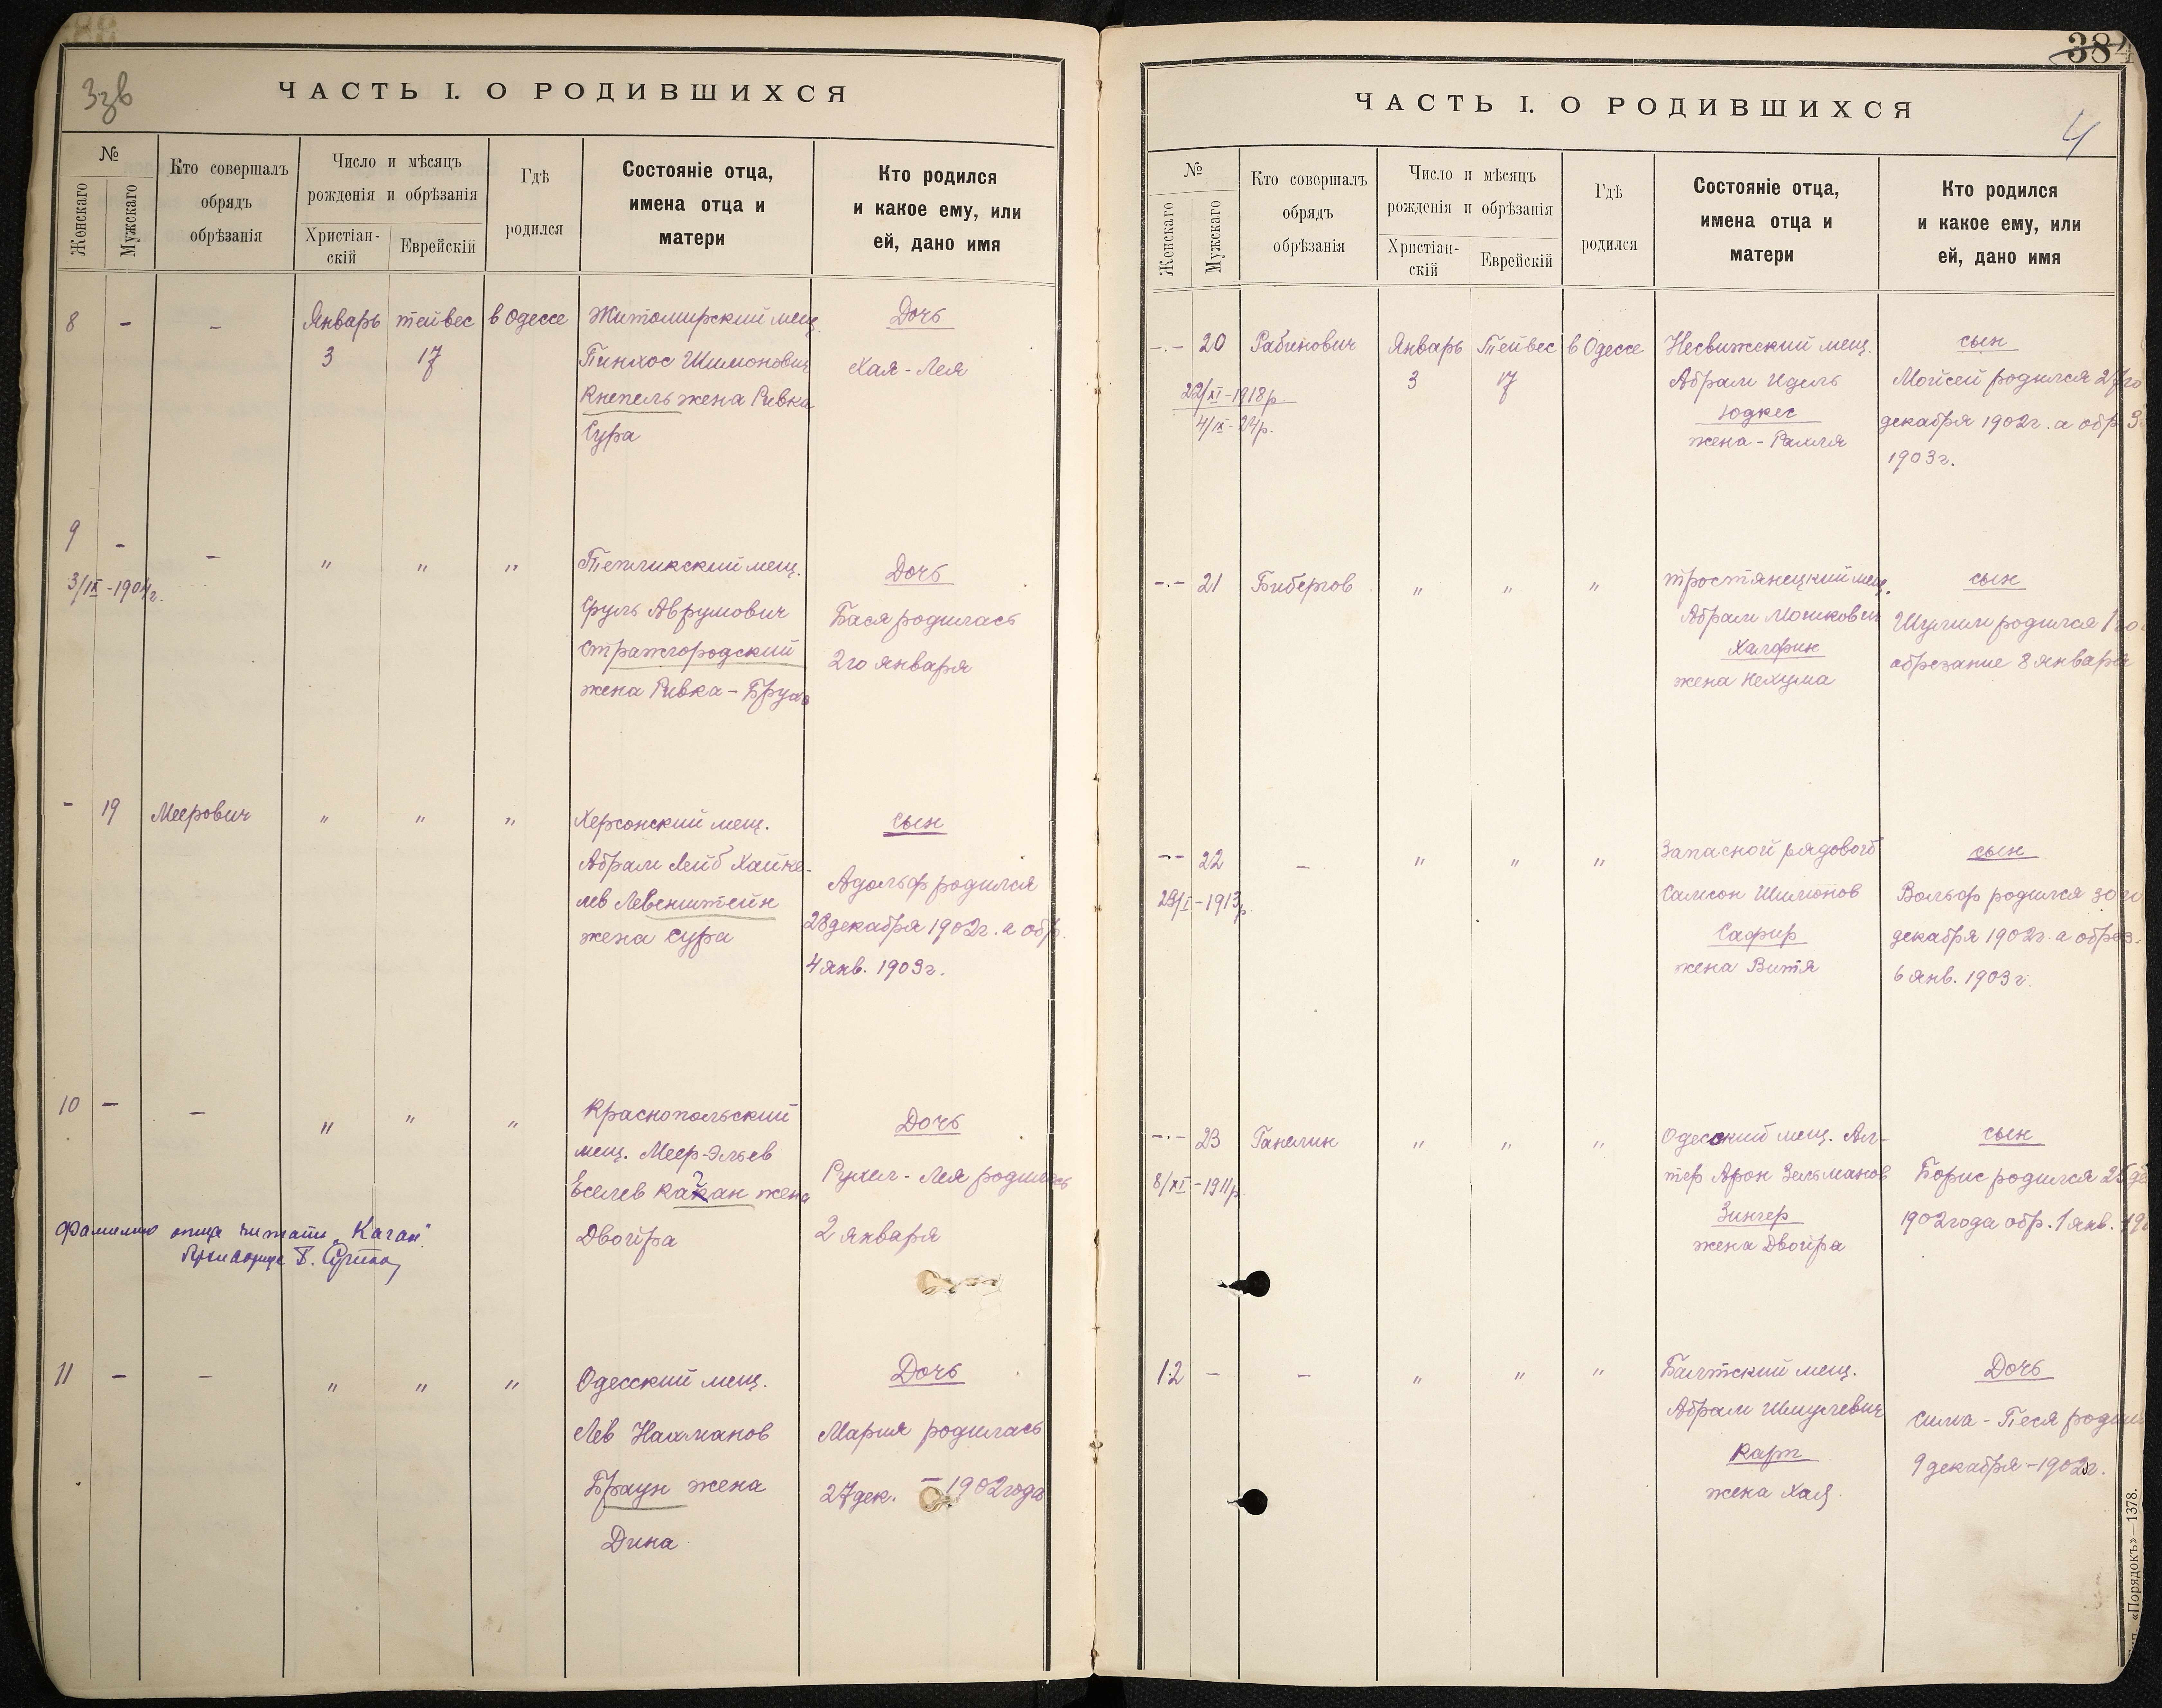 3зв
ЧАСТЬ I. О РОДИВШИХСЯ
№
Женскаго
Мужскаго
Кто совершалъ
обрядъ
обрѣзанія
Число и мѣсяцъ
рожденія и обрѣзанія
Христіан-
скій
Еврейскій
Гдѣ
родился
Состояніе отца,
имена отца и
матери
Кто родился
и какое ему, или
ей, дано имя
8 - - Январь тейвес в Одессе Житомирский мещ. Дочь
3 17 Пинхос Шимонович Хая-Лея
Кнепель жена Ривка
Сура
9 - - " " " Тепликский мещ. Дочь
3/IX-1904г.
Сруль Аврумович Бася родилась
Стражгородский 2го января
жена Ривка-Бруха
- 19 Меерович " " " Херсонский мещ. сын
Абрам Лейб Хайке- Адольф родился
лев Левенштейн 28 декабря 1902г. а обр.
жена Сура 4 янв. 1903г.
10 - - " " " Краснопольский Дочь
мещ. Меер-Эльев
Еселев Каган жена Рухел-Лея родилась
Двойра 2 января
фамилию отца читать „Каган"
11 - - " " " Одесский мещ. Дочь
Лев Нахманов Мария родилась
Браун жена 27 дек. - 1902 года
Дина
384
ЧАСТЬ I. О РОДИВШИХСЯ
4
№
Женскаго
Мужскаго
Кто совершалъ
обрядъ
обрѣзанія
Число и мѣсяцъ
рожденія и обрѣзанія
Христіан-
скій
Еврейскій
Гдѣ
родился
Состояніе отца,
имена отца и
матери
Кто родился
и какое ему, или
ей, дано имя
-.- 20 Рабинович Январь Тейвес в Одессе Несвижский мещ. сын
3 17 Абрам Идель Мойсей родился 27го
22/XI-1918р. Юдкес декабря 1902г. а обр. 3
4/IX-24р. жена-Рахля 1903г.
-.- 21 Бибергов " " " тростянецкий мещ. сын
Абрам Мошкович Шулим родился 1го
Халфин обрезание 8 января
жена Нехума
-- 22 - " " " Запасной рядовой сын
29/I-1913р. Самсон Шимонов Вольф родился 30го
Сафир декабря 1902г. а обрез.
жена Витя 6 янв. 1903г.
-.- 23 Ганелин " " " Одесский мещ. Ал- сын
8/XI-1911р. тер Арон Зельманов Борис родился 25 де
Зингер 1902 года обр. 1 янв. 190
жена Двойра
12 - - " " " Балтский мещ. Дочь
Абрам Шмулевич Сима-Песя родил
Карт 9 декабря-1902г.
жена Хая.
«Порядокъ»—1378.